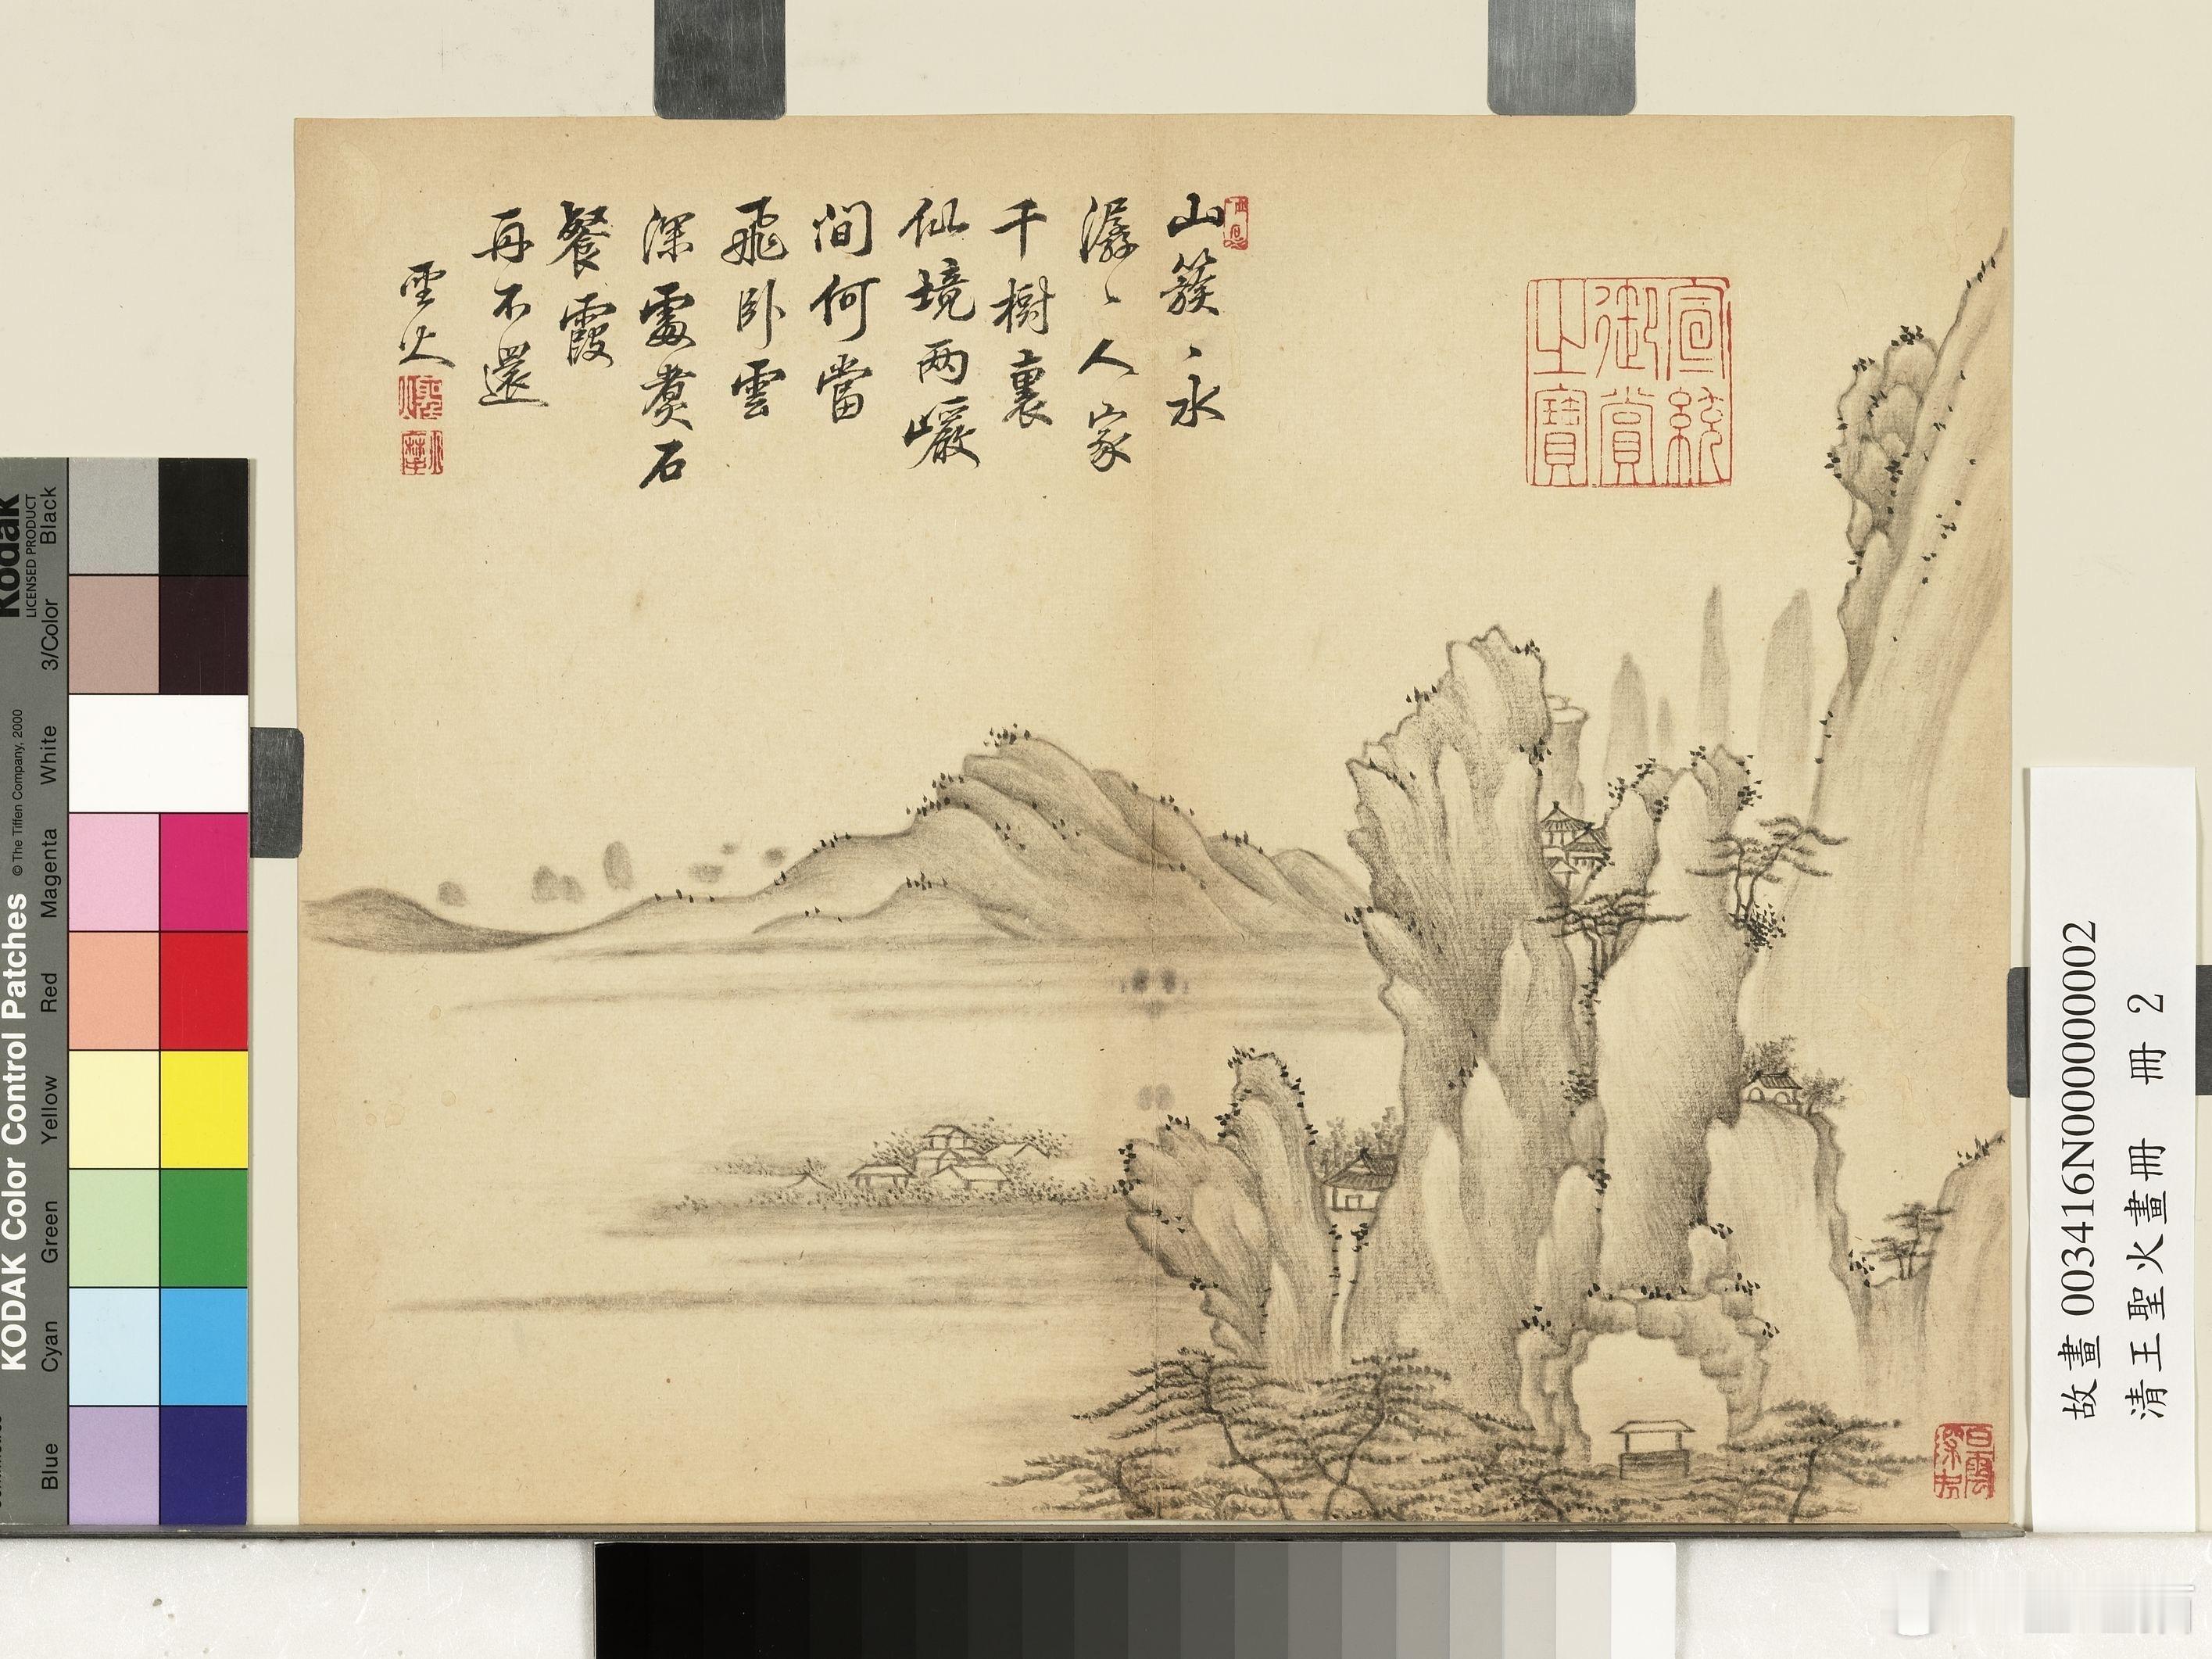 山簇〻永
潺〻人家
千樹裏
仙境两巖
間何當
飛卧雲
深處煑石
餐霞
再不還
聖火
宣統
御賞
之寶
白雲
深處
故畫 003416N000000002
清王聖火畫冊 冊 2
Kodak
LICENSED PRODUCT
KODAK Color Control Patches
© The Tiffen Company, 2000
Blue
Cyan
Green
Yellow
Red
Magenta
White
3/Color
Black